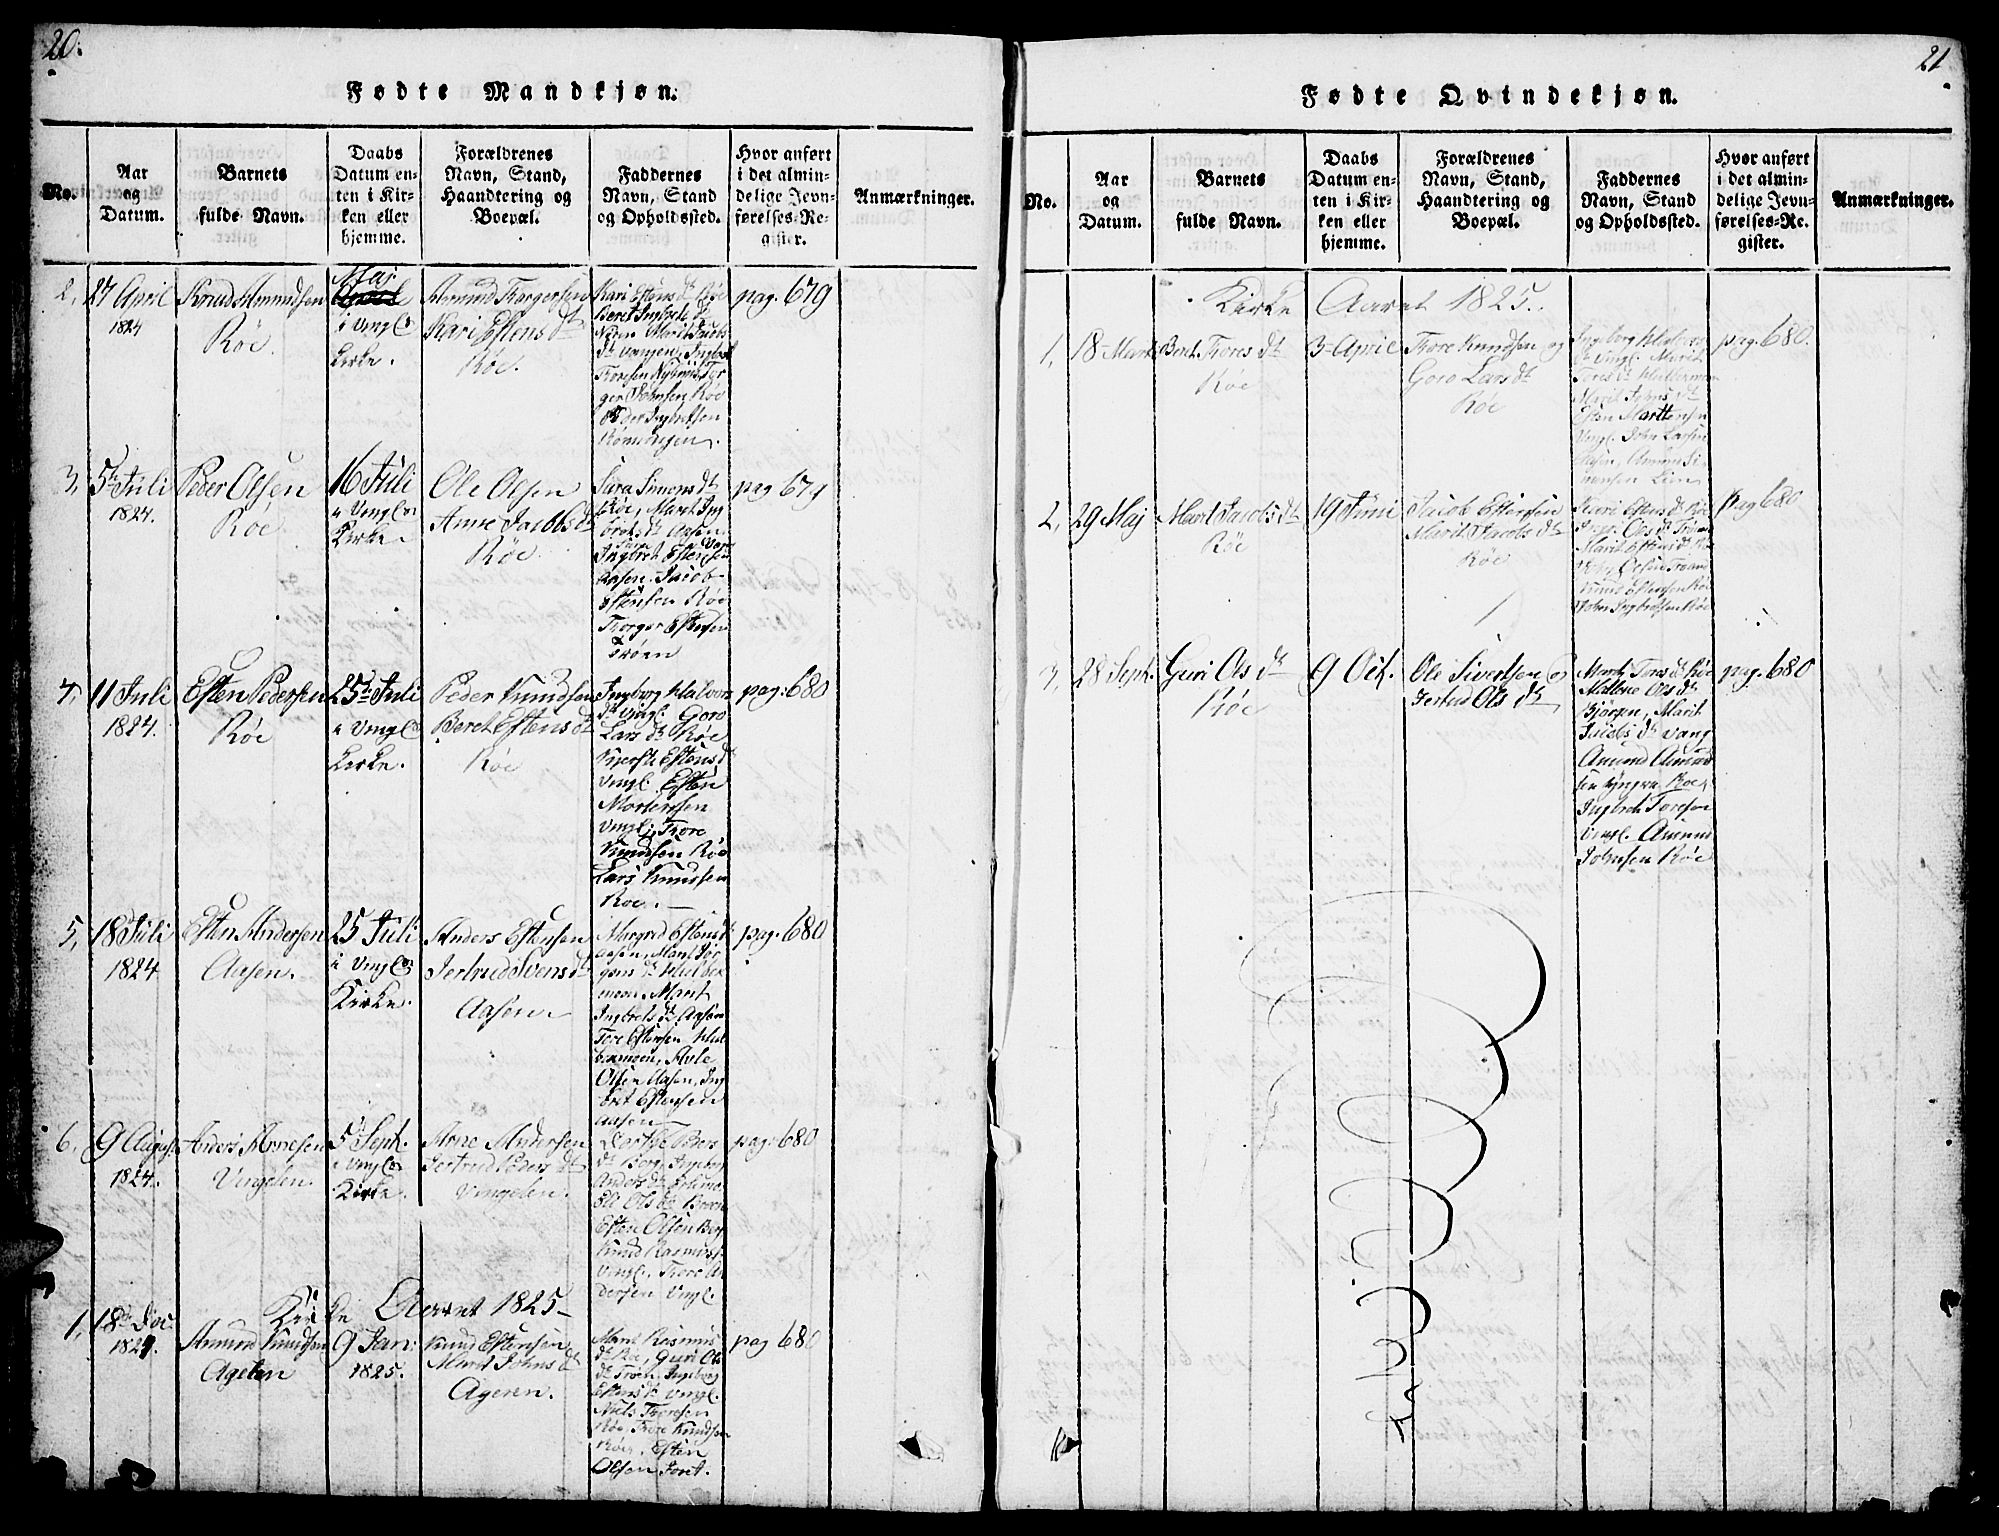 20.
Fødte Mandkjøn.
No.
Aar
og
Datum.
Barnets
fulde Navn.
Daabs
Datum en-
ten i Kir-
ken eller
hjemme.
Forældrenes
Navn, Stand,
Haandtering og
Boepæl.
Faddernes
Navn, Stand
og Opholdssted.
Hvor anført
i det almin-
delige Jevn-
førelses-Re-
gister.
Anmærkninger.
2,
27 April
1824
Knud Amundsen
Røe.
Maj
i Vingl.
Kirke.
Amund Torgersen
Kari Estens dt
Røe.
Kari Estens dt Røe
Beret Ingbrets dt
Marit Jacobs
dt Vangen, Ingbret
Toresen
ger Johnsen Røe
Peder Ingbretsen
pag. 679
3,
5te Juli
1824.
Peder Olsen
Røe
16 Juli
i Vingl.
Kirke.
Ole Olsen
Anne Jacobs dt
Røe
Sara Simons dt
Røe, Marit Ing
brets dt Aasen
Ingbret Estensen
Aasen. Jacob
Estensen Røe
Torger Estensen
Trøen
pag 679
4,
11 Juli
1824.
Esten Pedersen
Røe
25de Juli
i Vingl.
Kirke.
Peder Knudsen
Beret Estens dt
Røe
Ingborg Halvors
dt Vingl. Goro
Lars dt Røe
Kjersti Estens dt
Vingl. Esten
Mortensen
Vingl, Tore
Knudsen Røe
Lars Knudsen
Roe.
pag. 680
5,
18 Juli
1824
Esten Andersen
Aasen.
25 Juli
i Vingl.
Kirke.
Anders Estensen
Jertrud Svens dt
Aasen.
Margred Estens dt
Aasen, Marit Jør
gens dt Hulber
moen. Marit
Ingbrets dt Aasen
Tore Estensen Hul
bermoen, Avle
Olsen Aasen, Ing
bret Estensen
Aasen
pag. 680
6,
9 August
1824.
Anders Arnesen
Vingelen.
5 Sept.
i Vingl.
Kirke.
Arne Andersen
Jertrud Peders dt
Vingelen.
Dorthe Pers
dt Berg, Ingeborg
Anders dt
Ole Ols dt
Esten Olsen Berg
Knud Rasmuss.
Vingl. Tore An
dersen Vingl.
pag. 680
Kirke Aaret 1825
1,
18de Dec.
1824.
Amund Knudsen
Ageren
9 Jan:
1825.
Knud Estensen
Marit Johns dt
Ageren.
Marit Rasmus
dt Røe, Guri Ols
dt Trøen, Ingeborg
Estens dt Vingl.
Niels Toresen
Røe, Tore Knudsen
Røe, Esten
Olsen
pag 680
21
Fødte Qvindekjøn.
No.
Aar
og
Datum.
Barnets
fulde Navn.
Daabs
Datum en-
ten i Kir-
ken eller
hjemme.
Forældrenes
Navn, Stand,
Haandtering og
Boepæl.
Faddernes
Navn, Stand
og Opholdssted.
Hvor anført
i det almin-
delige Jevn-
førelses-Re-
gister.
Anmærkninger.
Kirke Aaret 1825.
1,
18 Marts
Beret Tores dt
Røe
3 April
Tore Knudsen og
Goro Lars dt
Røe
Ingborg Halvors
dt Vingl. Marit
Tores dt Hulbermoen
Marit Johns dt
Esten Martensen
Vingl. John Larsen
Aasen, Amund Si
monsen Lien
pag. 680.
2,
29 Maj
Marit Jacobs dt
Røe
19 Juni
Jacob Estensen
Marit Jacobs dt
Røe
Kari Estens dt Røe
Ols dt Trøen
Marit Estens dt Røe
Knud Estensen Røe
John Ingbretsen Røe
Pag 680
3,
28 Sept.
Guri Ols dt
Røe
9 Oct.
Ole Sivertsen og
Jertrud Ols dt
Marit Tores dt Røe
Malene Ols dt
Bjørgen, Marit
Jacobs dt Vang
Amund Amund
sen Røe,
Ingbret Toresen
Vingl. Amund
Johnsen Røe
pag. 680